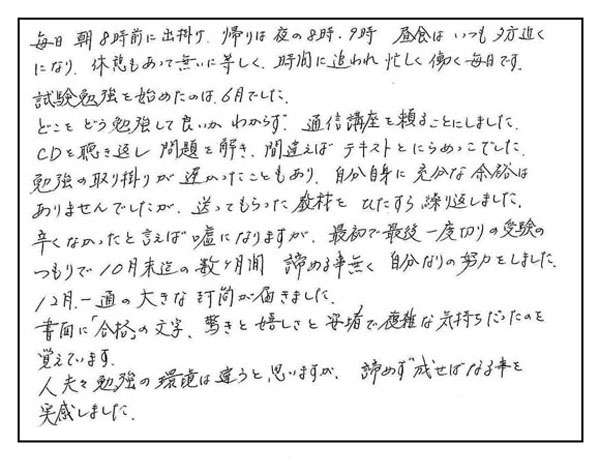 毎日 朝8時前に出掛け、帰りは夜の8時・9時 昼食はいつも夕方近く
になり、休憩もあって無いに等しく、時間に追われ忙しく働く毎日です。
試験勉強を始めたのは、6月でした。
どこをどう勉強して良いかわからず、通信講座を頼ることにしました。
CDを聴き返し 問題を解き、間違えば テキストとにらめっこでした。
勉強の取り掛りが遅かったこともあり、自分自身に充分な余裕は
ありませんでしたが、送ってもらった教材を ひたすら繰り返しました。
辛くなかったと言えば嘘になりますが、最初で最後 一度切りの受験の
つもりで10月末迄の数ヶ月間 諦める事無く 自分なりの努力をしました。
12月、一通の大きな封筒が届きました。
書面に「合格」の文字、驚きと嬉しさと安堵で複雑な気持ちだったのを
覚えています。
人夫々勉強の環境は違うと思いますが、諦めず成せばなる事を
実感しました。